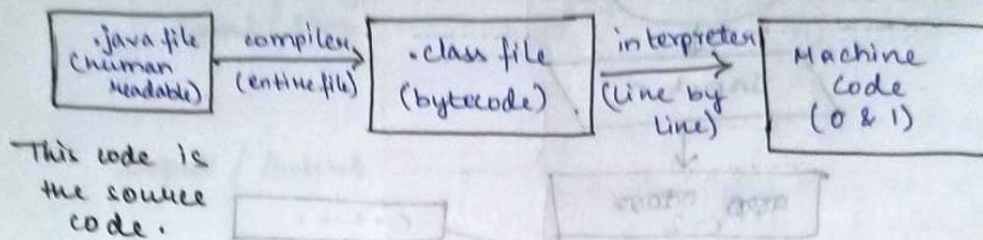 .java file
(human
readable)
compiler
(entire file)
.class file
(bytecode)
interpreter
(line by
line)
Machine
code
(0 & 1)
This code is
the source
code.